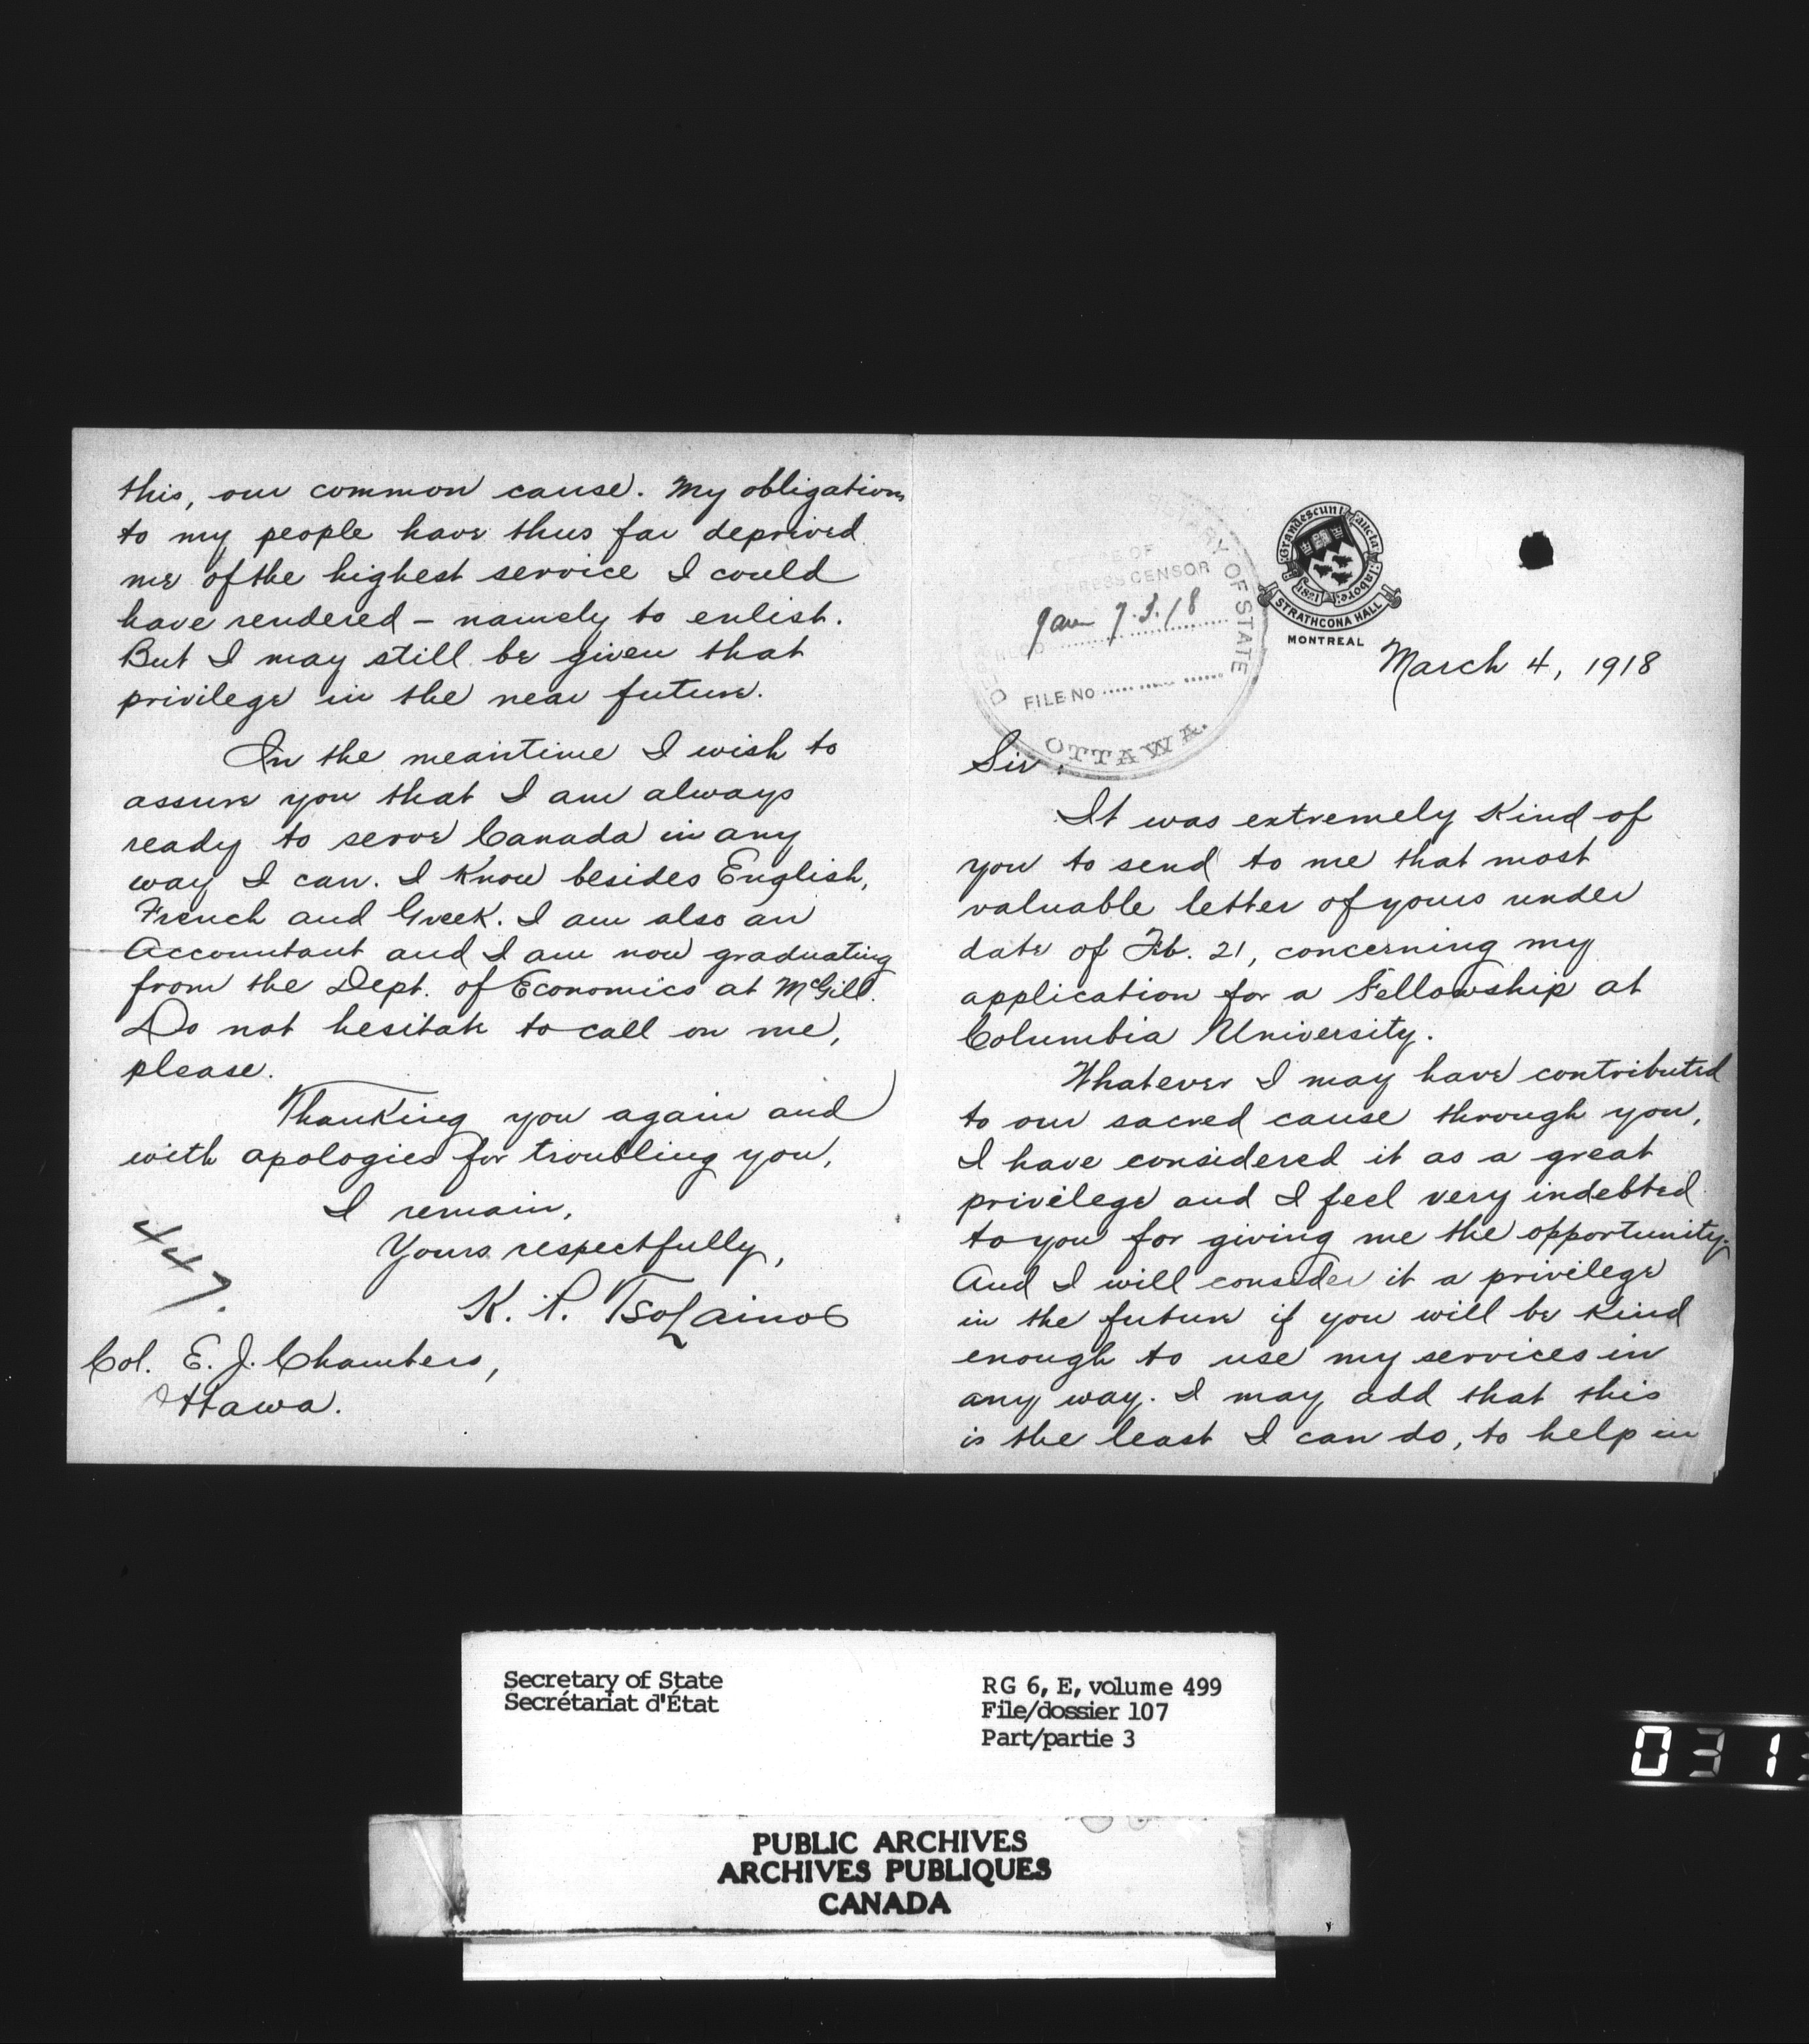 Grandescunt Aucta Labore
1821
STRATHCONA HALL
MONTREAL
PRESS CENSOR
OF STATE
7.3.18
FILE NO
OTTAWA.
March 4, 1918
Sir:
It was extremely kind of
you to send to me that most
valuable letter of yours under
date of Feb. 21, concerning my
application for a Fellowship at
Columbia University.
Whatever I may have contributed
to our sacred cause through you,
I have considered it as a great
privilege and I feel very indebted
to you for giving me the opportunity.
And I will consider it a privilege
in the future if you will be kind
enough to use my services in
any way. I may add that this
is the least I can do, to help in
this, our common cause. My obligations
to my people have thus far deprived
me of the highest service I could
have rendered – namely to enlist.
But I may still be given that
privilege in the near future.
In the meantime I wish to
assure you that I am always
ready to serve Canada in any
way I can. I know besides English,
French and Greek. I am also an
Accountant and I am now graduating
from the Dept. of Economics at McGill.
Do not hesitate to call on me,
please.
Thanking you again and
with apologies for troubling you,
I remain,
Yours respectfully,
K. P. Tsolainos
447.
Col. E. J. Chambers,
Ottawa.
Secretary of State
Secrétariat d'État
RG 6, E, volume 499
File/dossier 107
Part/partie 3
031
PUBLIC ARCHIVES
ARCHIVES PUBLIQUES
CANADA